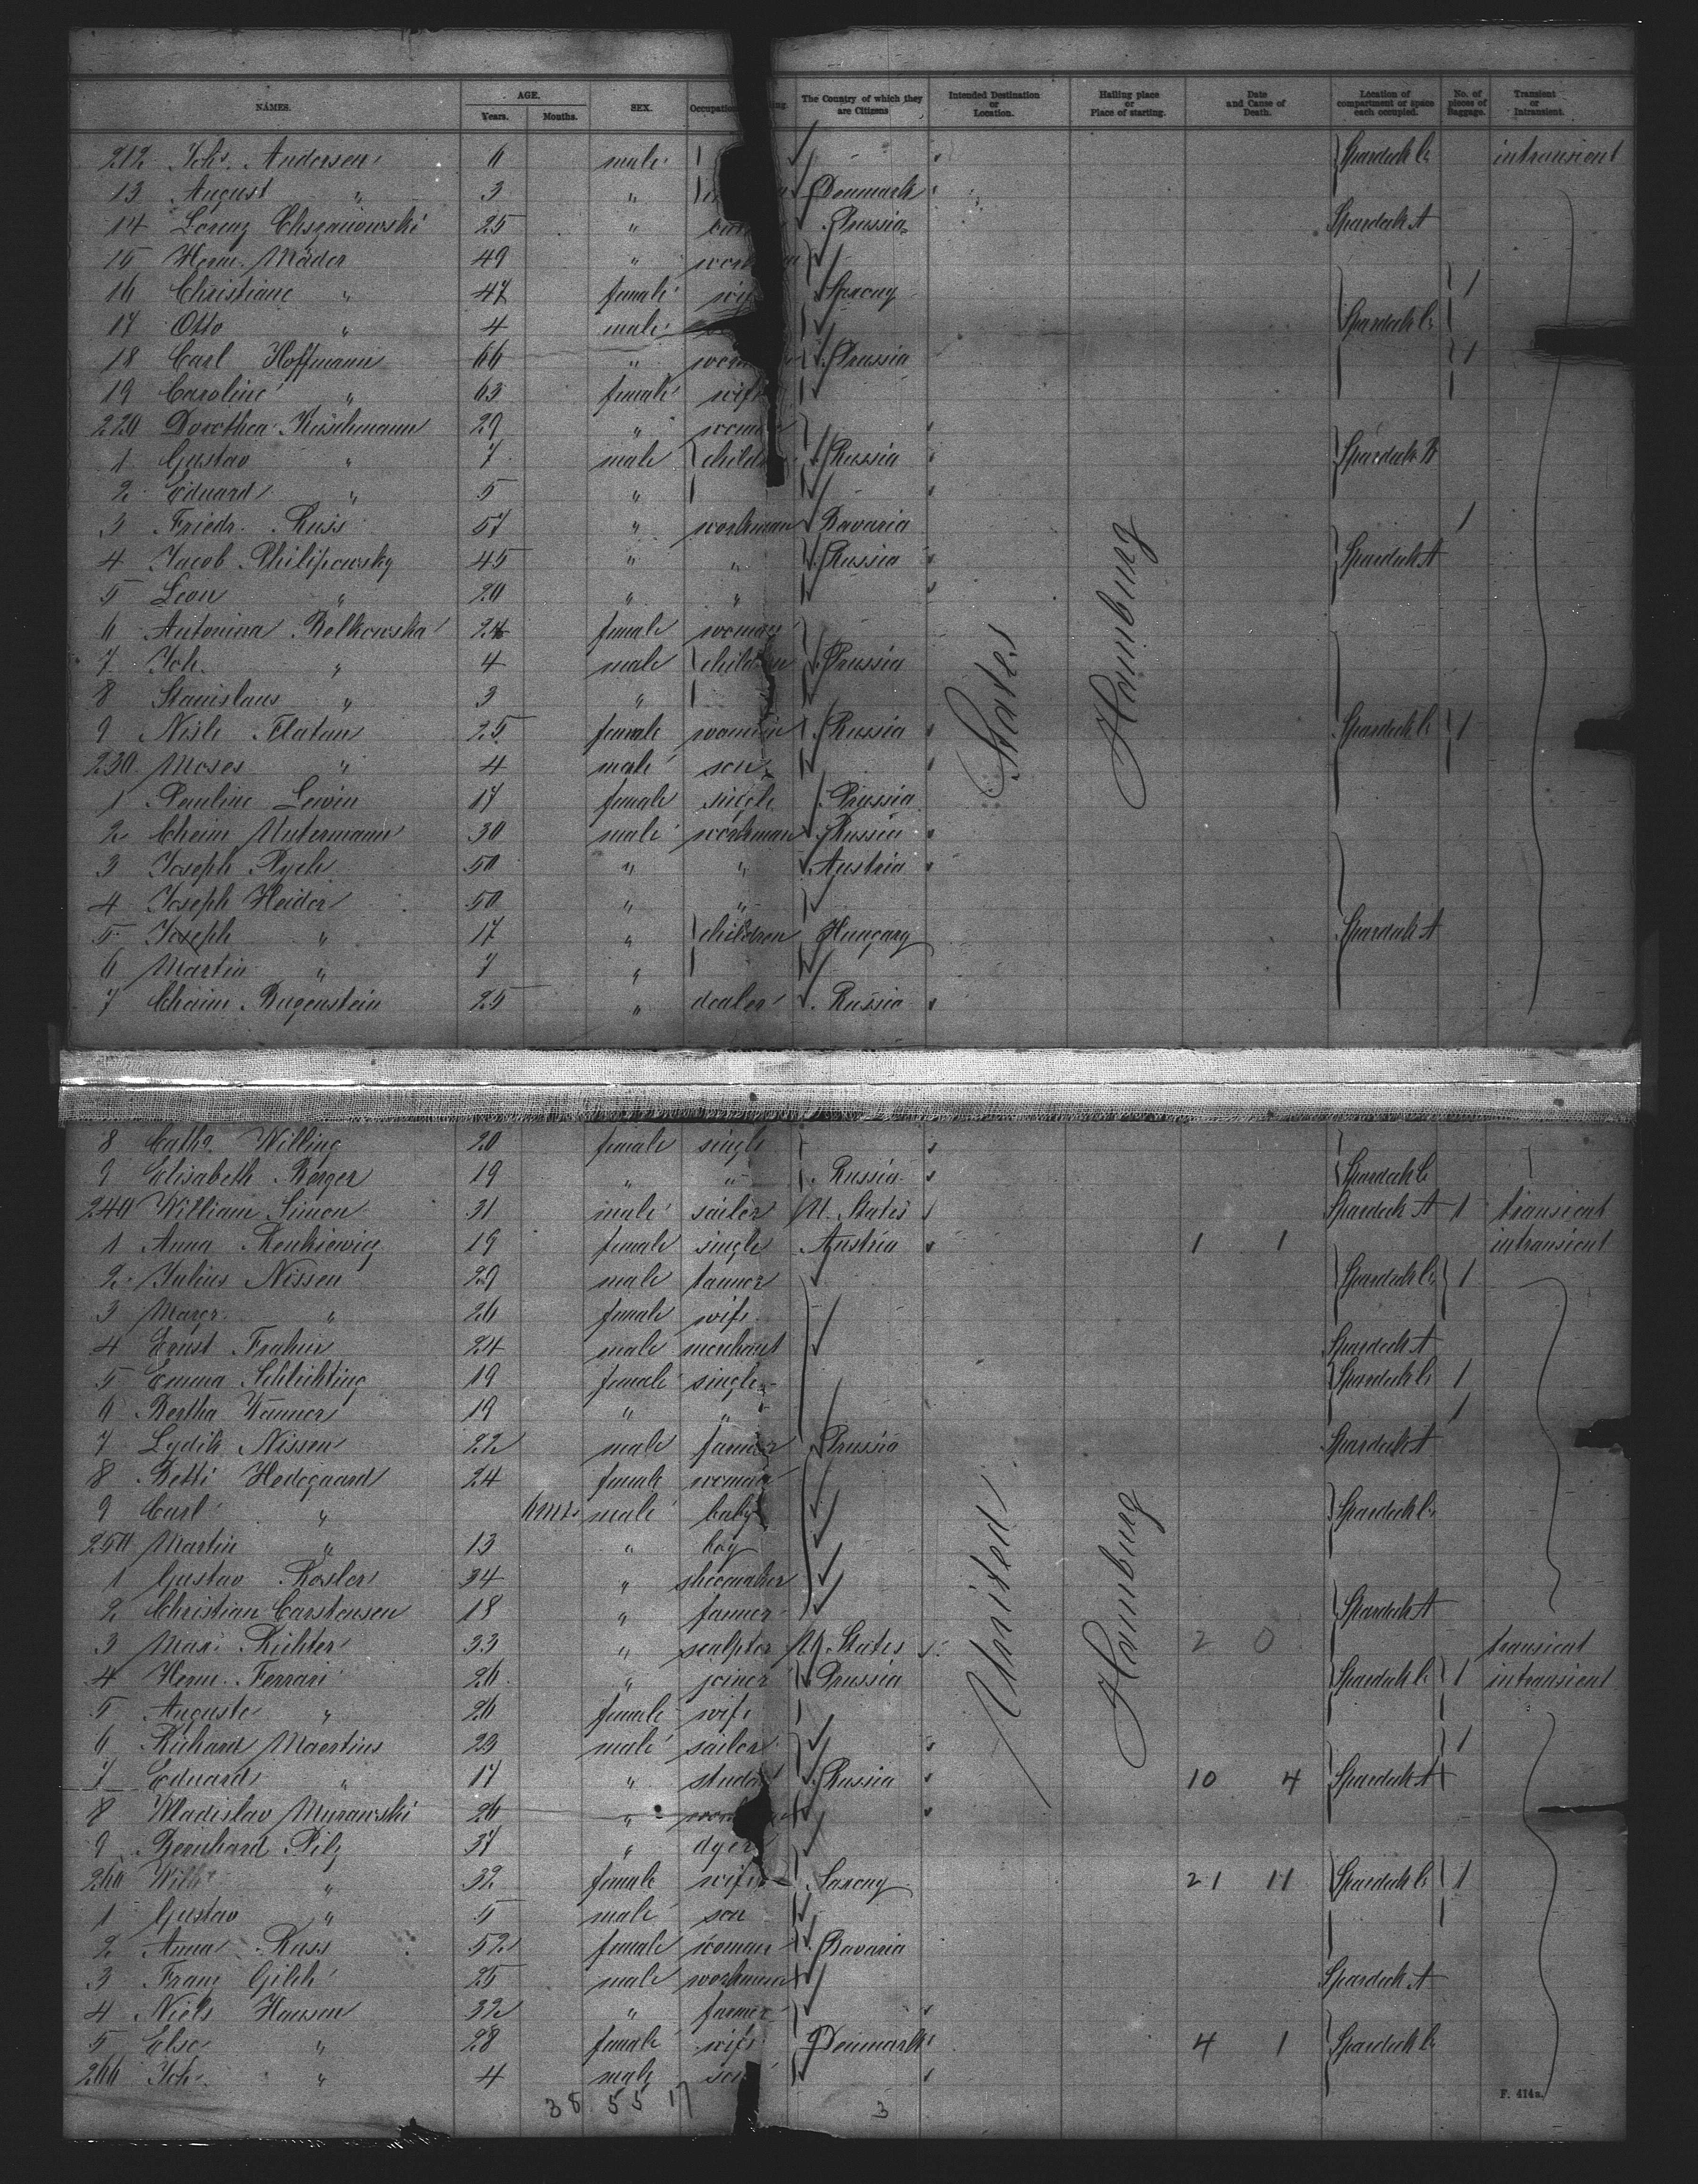 NAMES. AGE. Years. Months. SEX. The Country of which they are Citizens Intended Destination or Location. Hailing place or Place of starting. Date and Cause of Death. Location of compartment or space each occupied. No. of pieces of Baggage. Transient or Intransient.
212 Joh. Andersen 6 male Spardeck C intransient
13 August " 3 " Denmark
14 Lorenz 25 " Prussia Spardeck A
15 Herm. Mäder 49 "
16 Christiane " 47 female wife Saxony 1
17 Otto " 4 male Spardeck C
18 Carl Hoffmann 66 " Prussia 1
19 Caroline " 63 female wife
220 Dorothea Küschmann 29 " woman
1 Gustav " 7 male children Russia Spardeck B
2 Eduard " 5 "
3 Friedr. Russ 57 " workman Bavaria 1
4 Jacob Philipowsky 45 " " Russia Spardeck A
5 Leon " 20 " "
6 Antonina Belkowska 24 female woman
7 Joh. " 4 male children Prussia
8 Stanislaus " 3 "
9 Nisle Flatau 25 female woman Russia Spardeck C 1
230 Moses " 4 male son
1 Pauline Lewin 17 female single Prussia
2 Cheim Untermann 30 male workman Russia
3 Joseph Rych 50 " " Austria
4 Joseph Heider 50 " "
5 Joseph " 17 " children Hungary Spardeck A
6 Martin " 7 "
7 Chaim Bugenstein 25 " dealer Russia
States
Hamburg
8 Cath. Willing 20 female single
9 Elisabeth Berger 19 " " Russia Spardeck C
240 William Simon 31 male sailor U. States Spardeck A 1 transient
1 Anna Renkiewicz 19 female single Austria 1 1 intransient
2 Julius Nissen 29 male tanner Spardeck C 1
3 Margr. " 26 female wife
4 Ernst Frahm 24 male merchant Spardeck A
5 Emma Schlichting 19 female single Spardeck C 1
6 Bertha Wanner 19 " " 1
7 Lydik Nissen 22 male farmer Prussia Spardeck A
8 Betti Hedegaard 24 female woman
9 Carl " 6 mts male baby Spardeck C
250 Martin " 13 " boy
1 Gustav Rösler 34 " shoemaker
2 Christian Carstensen 18 " farmer Spardeck A
3 Max Richter 33 " sculptor U. States 2 0 transient
4 Herm. Ferrari 26 " joiner Prussia Spardeck C 1 intransient
5 Auguste " 26 female wife
6 Richard Maertins 23 male sailor 1
7 Eduard " 17 " student Russia 10 4 Spardeck A
8 Wladislav Murawski 26 "
9 Bernhard Pilz 37 " dyer
260 " 32 female wife Saxony 21 11 Spardeck C 1
1 Gustav " 5 male son
2 Anna Russ 52 female woman Bavaria
3 Franz Gilch 25 male workman Spardeck A
4 Niels Hansen 32 " farmer
5 Else " 28 female wife Denmark 4 1 Spardeck C
266 Joh. " 4 male son
United
Hamburg
38 55 17 3
F. 414a.